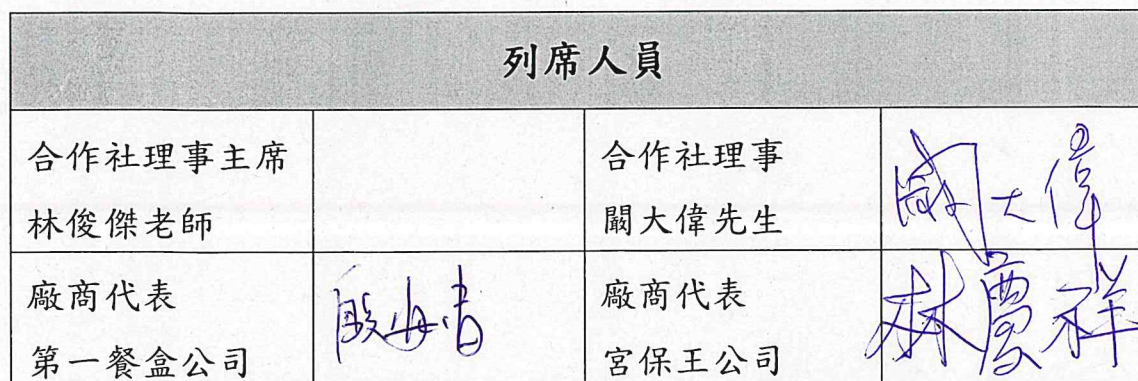 列席人員
合作社理事主席
林俊傑老師
合作社理事
闞大偉先生
闞大偉
廠商代表
第一餐盒公司
廠商代表
宮保王公司
林慶祥